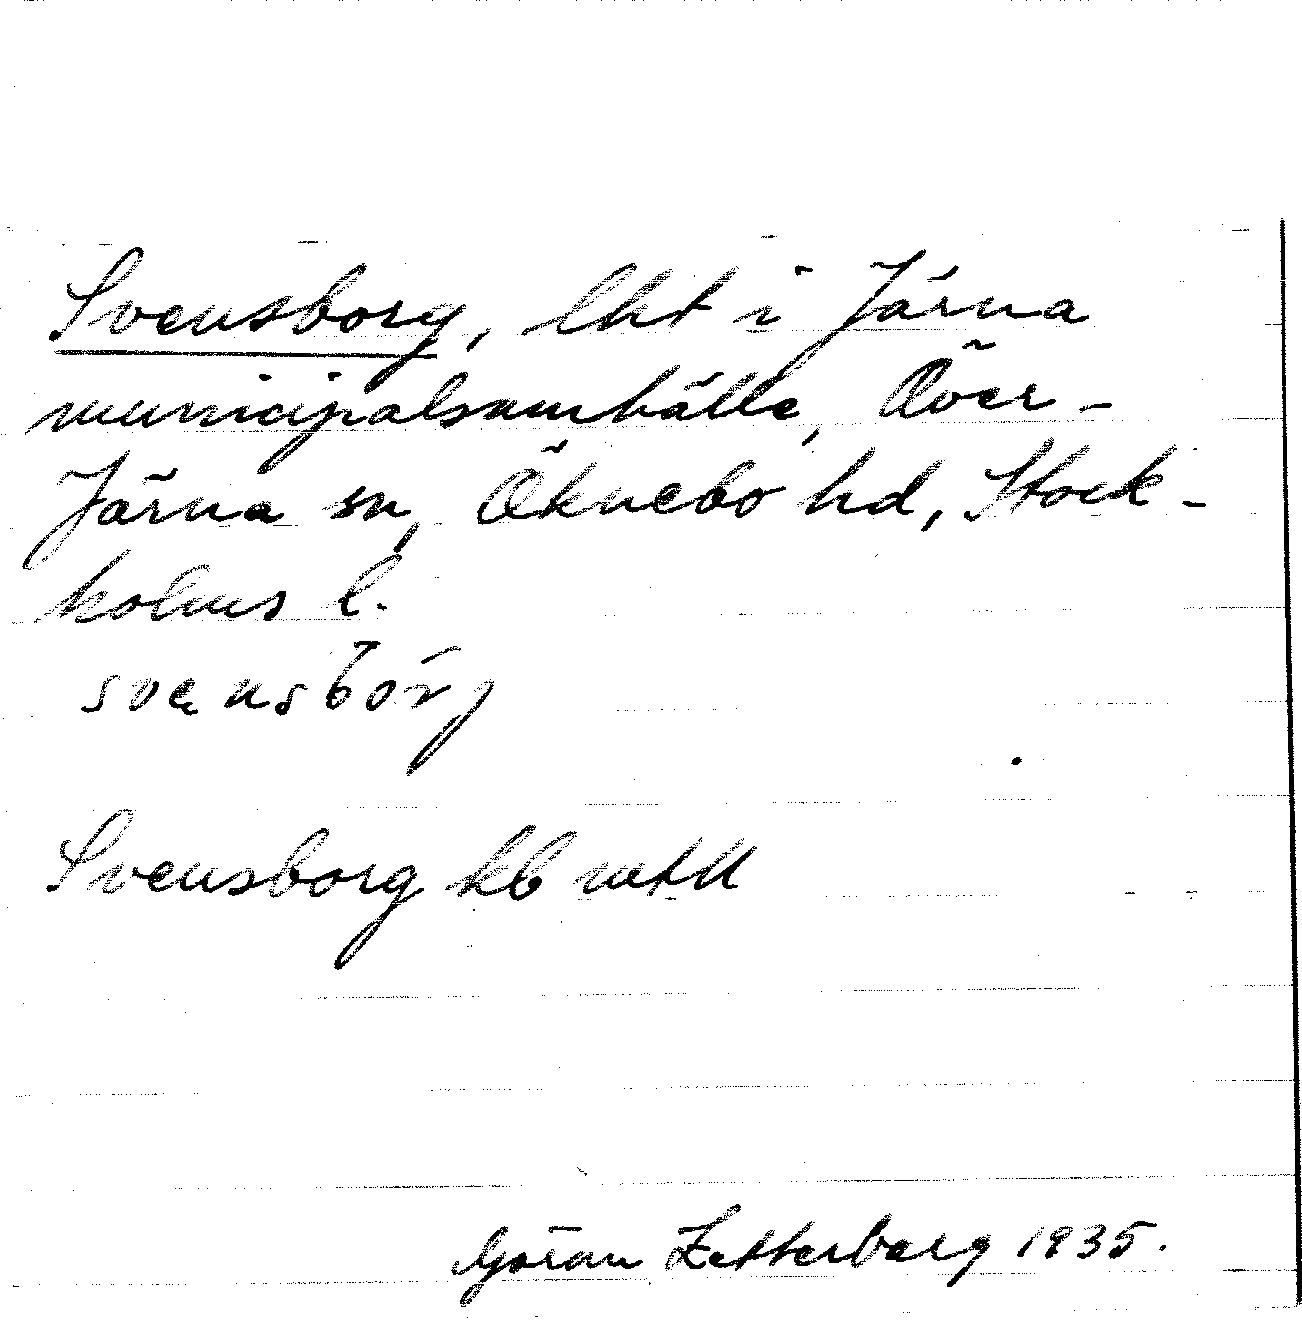 Svensborg, lht i Järna
municipalsamhälle, Över-
Järna sn, Öknebo hd, Stock-
holms l.
Svensborg kb
Göran Zetterberg 1935.